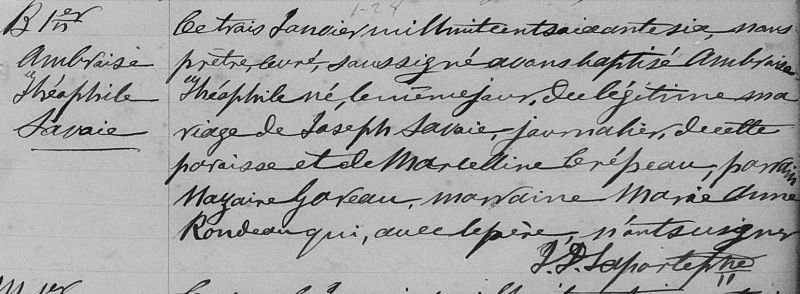 B 1er
Ambroise
Théophile
Savoie
Le trois Janvier mil huit cent soixante six, nous
prêtre, curé, soussigné avons baptisé Ambroise
Théophile né, le même jour, du légitime ma
riage de Joseph Savoie, journalier, de cette
paroisse et de Marcelline Crépeau, parrain
Nazaire Goreau, marraine Marie Anne
Rondeau qui, avec le père, n'ont su signer
J. P. Laporte ptre